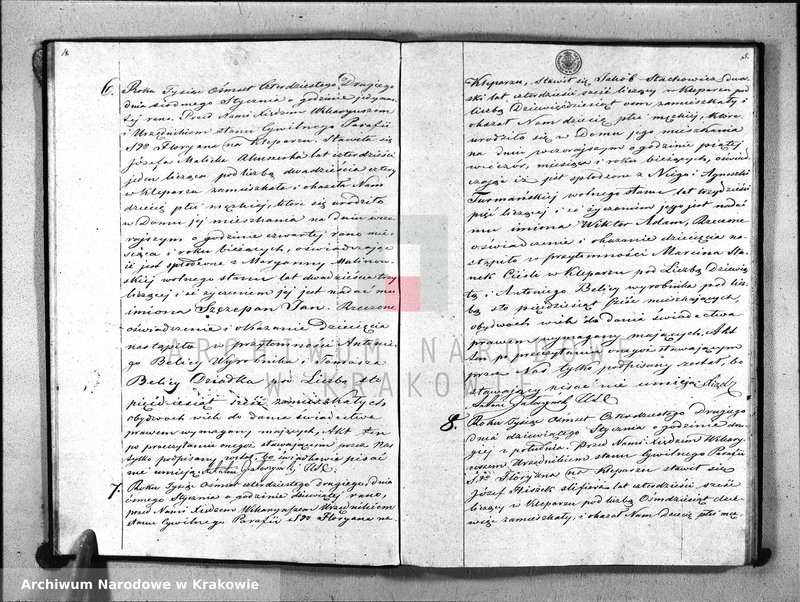 4.
6. Roku Tysiąc Ośmset Czterdziestego Drugiego
dnia siodmego Stycznia o godzinie jedyna-
stej rano. Przed Nami Xiędzem Wikaryuszem
i Urzędnikiem stanu Cywilnego Parafii
Sgo Floryana na Kleparzu. Stawiła się
Józefa Malicka Akuszerka lat czterdzieści
jeden licząca pod liczbą dwadzieścia cztery
w Kleparzu zamieszkała i okazała Nam
dziecię płci męzkiej, które się urodziło
w Domu jej mieszkania na dniu wczo-
rajszym o godzinie czwartej rano mie-
siąca i roku bieżących, oświadczając
iż jest spłodzone z Maryanny Malinow-
skiej wolnego stanu lat dwadzieścia trzy
liczącej i że życzeniem jej jest nadać mu
imiona Szczepan Jan. Rzeczone
oświadczenie i okazanie Dziecięcia
nastąpiło w przytomności Antonie-
go Belicy Wyrobnika i Tomasza
Belicy Dziadka pod Liczbą sto
pięćdziesiąt sześć zamieszkałych
obydwoch wiek do dania świadectwa
prawem wymagany mających, Akt ten
po przeczytaniu onegoż stawającym przez Nas
tylko podpisany został, bo świadkowie pisać
nie umieją.
7. Roku Tysiąc Ośmset czterdziestego drugiego, dnia
ósmego Stycznia o godzinie dziewiątej rano,
przed Nami Xiędzem Wikaryuszem Urzędnikiem
stanu Cywilnego Parafii Sgo Floryana na
5.
Kleparzu, stawił się Jakób Stachowicz
lat czterdzieści sześć liczący w Kleparzu pod
liczbą Dziewięćdziesiąt osm zamieszkały i
okazał Nam dziecię płci męzkiej, które
urodziło się w Domu jego mieszkania
na dniu wczorajszym o godzinie piątej
wieczór, miesiąca i roku bieżących, oświad-
czając iż jest spłodzone z Niego i Agnieszki
wolnego stanu lat trzydzieści
pięć liczącej i że życzeniem jego jest nadać
mu imiona Wiktor Adam, Rzeczone
oświadczenie i okazanie dziecięcia na-
stąpiło w przytomności Marcina Sta-
nek Cieśli w Kleparzu pod Liczbą
i Antoniego Belicy wyrobnika pod licz-
bą sto pięćdziesiąt sześć mieszkających,
obydwoch wiek do dania świadectwa
prawem wymagany mających, Akt
ten po przeczytaniu onegoż stawającym
przez Nas tylko podpisany został, bo
stawający pisać nie umieją.
8. Roku Tysiąc Ośmset Czterdziestego Drugiego
dnia dziewiątego Stycznia o godzinie dru-
giej z południa. Przed Nami Xiędzem Wikary-
uszem Urzędnikiem stanu Cywilnego Parafii
Sgo Floryana na Kleparzu stawił się
Józef lat czterdzieści sześć
liczący w Kleparzu pod liczbą Ośmdziesiąt
zamieszkały, i okazał Nam Dziecię płci mę-
ARCHIWUM NARODOWE
W KRAKOWIE
Archiwum Narodowe w Krakowie